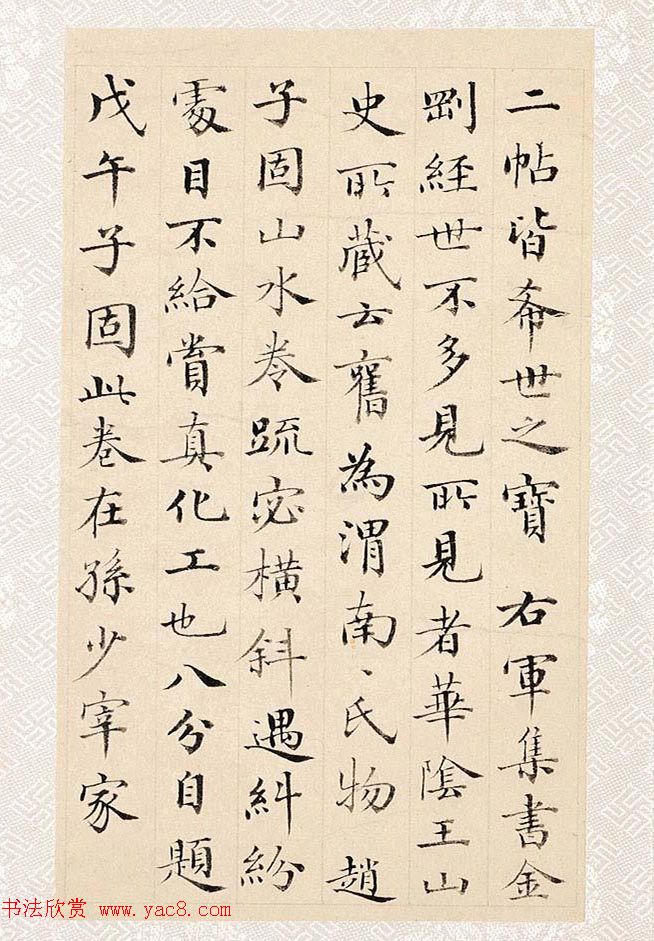 二帖皆希世之寶 右軍集書金
剛經世不多見所見者華陰王山
史所藏云舊為渭南〻氏物 趙
子固山水卷疏宻橫斜遇糾紛
處目不給賞真化工也八分自題
戊午子固此卷在孫少宰家
书法欣赏 www.yac8.com